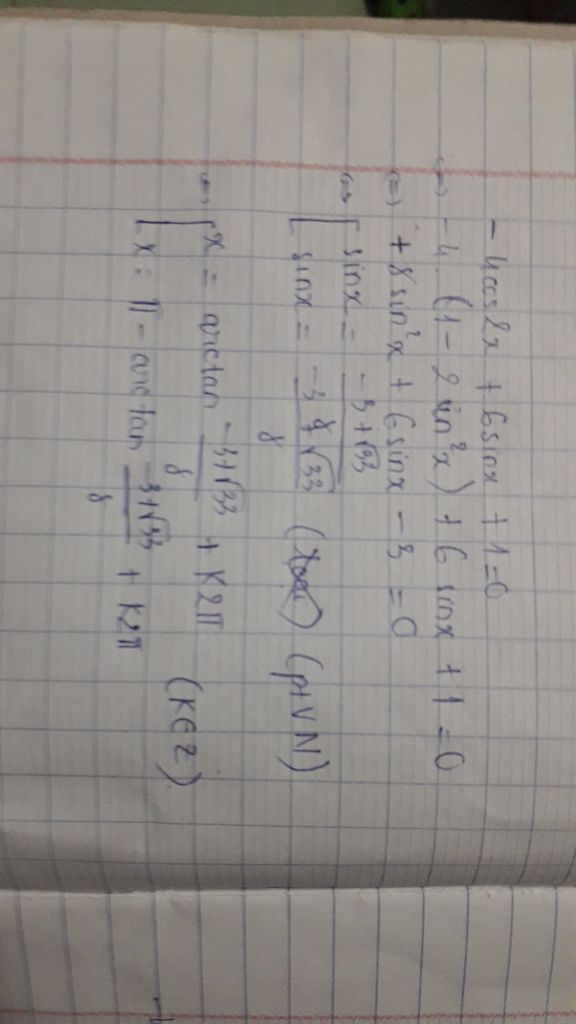 - 4cos2x + 6sinx + 1 = 0
<=> - 4. (1 - 2 sin²x) + 6 sinx + 1 = 0
<=> + 8sin²x + 6sinx - 3 = 0
<=> [ sinx = (-3+√33)/8
[ sinx = (-3-√33)/8 (ptVN)
<=> [ x = arctan (-3+√33)/8 + K2π
[ x = π - arctan (-3+√33)/8 + K2π
(K∈Z)